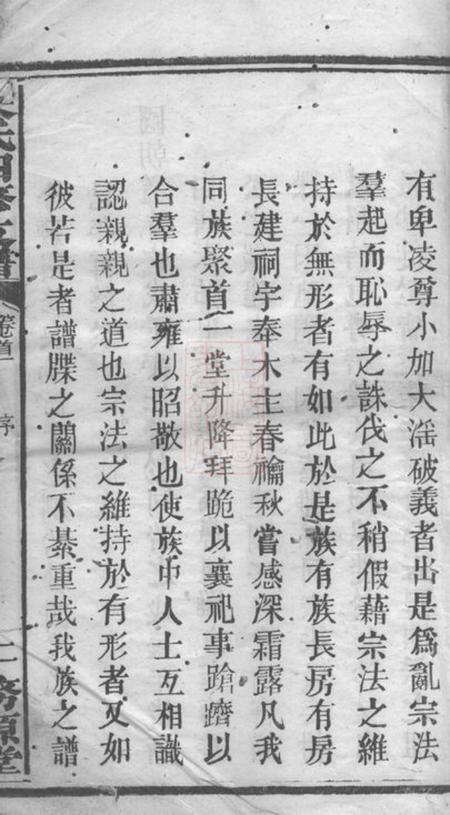 有卑凌尊小加大滛破義者出是爲亂宗法
羣起而恥辱之誅伐之不稍假藉宗法之維
持於無形者有如此於是族有族長房有房
長建祠宇奉木主春禴秋嘗感深霜露凡我
同族聚首一堂升降拜跪以襄祀事蹌躋以
合羣也肅雍以昭敬也使族中人士互相識
認親親之道也宗法之維持於有形者又如
彼若是者譜牒之關係不綦重哉我族之譜
氏四修支譜
卷首
序
二
務源堂